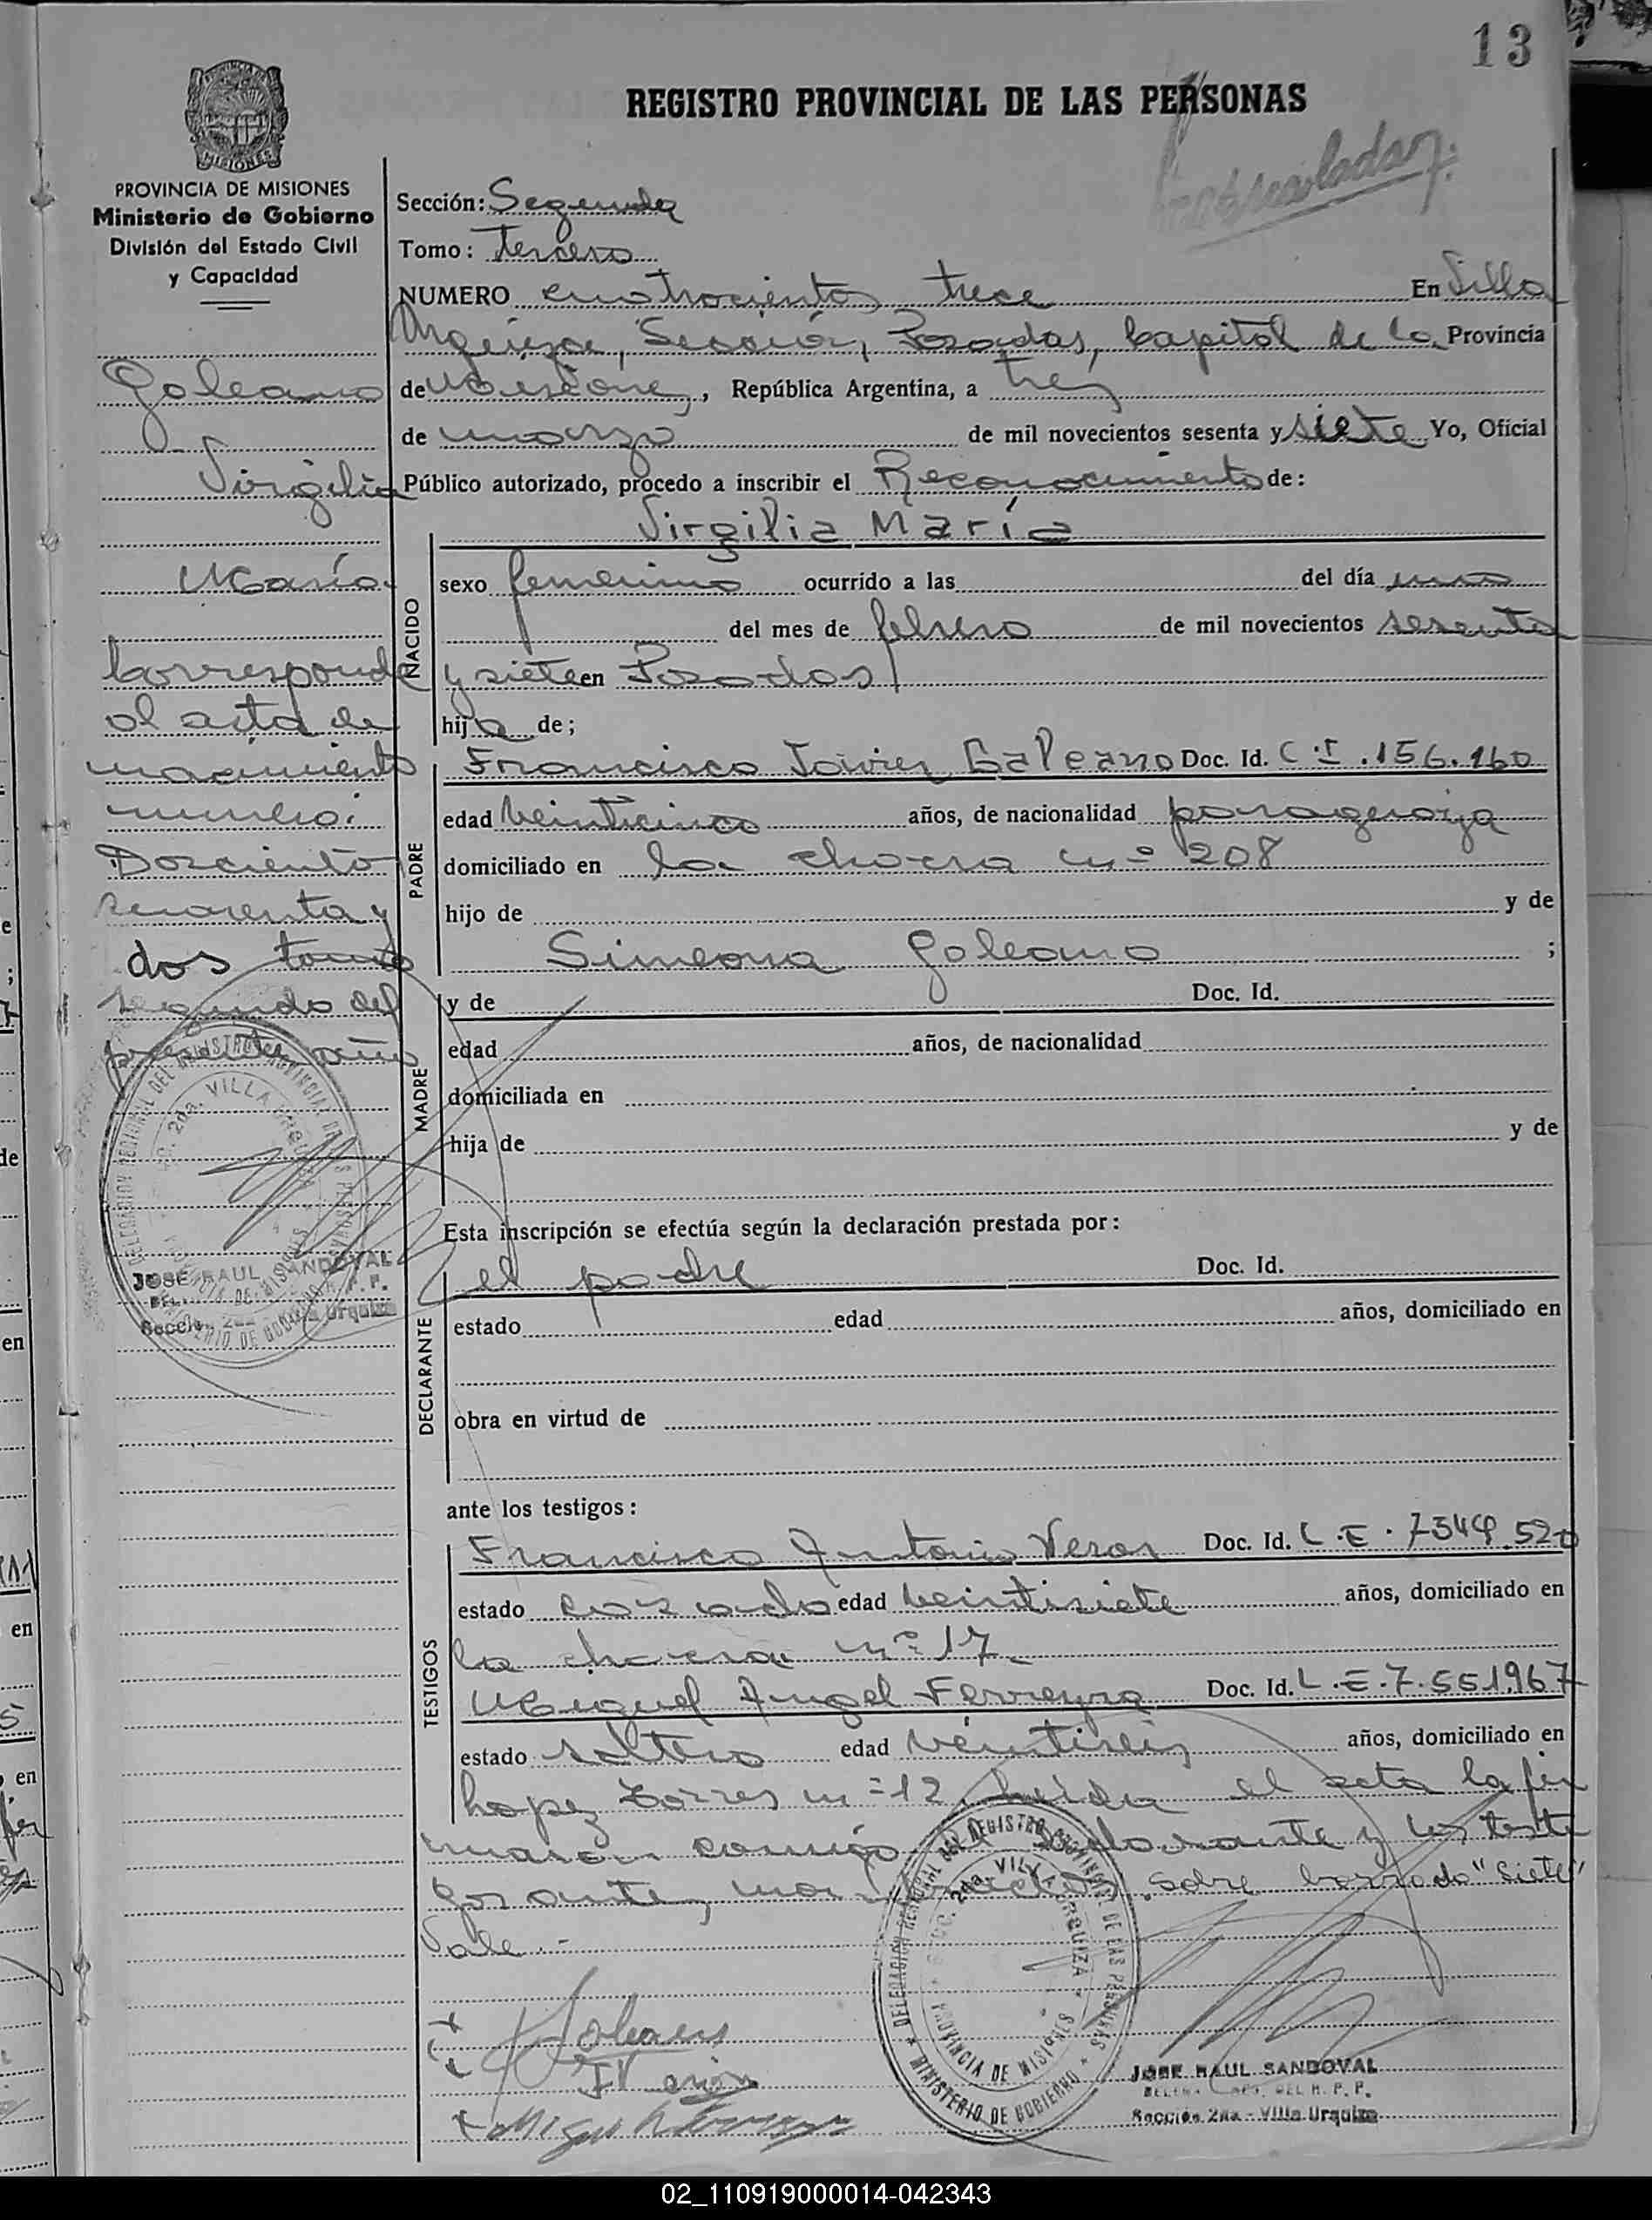 13
REGISTRO PROVINCIAL DE LAS PERSONAS
MISIONES
PROVINCIA DE MISIONES
Ministerio de Gobierno
División del Estado Civil
y Capacidad
Galeano
Virgilia
María
Corresponde
al acta de
nacimiento
número:
Doscientos
y
dos tomo
segundo del
presente año
Sección: Segunda
Tomo: Tercero
NUMERO cuatrocientos trece En Villa
Urquiza, Sección, Posadas, Capital de la Provincia
de Misiones, República Argentina, a tres
de marzo de mil novecientos sesenta y siete Yo, Oficial
Público autorizado, procedo a inscribir el Reconocimiento de:
Virgilia María
NACIDO
sexo femenino ocurrido a las del día uno
del mes de febrero de mil novecientos sesenta
y siete en Posadas
hija de;
PADRE
Francisco Javier Galeano Doc. Id. C.I. 156.160
edad veinticinco años, de nacionalidad paraguaya
domiciliado en la chacra nº 208
hijo de y de
Simeona Galeano ;
MADRE
y de Doc. Id.
edad años, de nacionalidad
domiciliada en
hija de y de
Esta inscripción se efectúa según la declaración prestada por:
DECLARANTE
el padre Doc. Id.
estado edad años, domiciliado en
obra en virtud de
ante los testigos:
TESTIGOS
Francisco Antonio Vera Doc. Id. L.E. 7344.520
estado casado edad veintisiete años, domiciliado en
la chacra nº 17
Miguel Angel Ferreyra Doc. Id. L.E. 7.551.967
estado soltero edad veintiseis años, domiciliado en
Lopez Torres nº 12 leída el acta la fir
maron conmigo el declarante y los testi
sobre borrado "siete"
Vale.-
DELEGACION REGIONAL DEL REGISTRO PROVINCIAL DE LAS PERSONAS
SECC. 2da. VILLA URQUIZA
PROVINCIA DE MISIONES
MINISTERIO DE GOBIERNO
JOSE RAUL SANDOVAL
Sección 2da - Villa Urquiza
DELEGACION REGIONAL DEL REGISTRO PROVINCIAL DE LAS PERSONAS
SECC. 2da. VILLA URQUIZA
PROVINCIA DE MISIONES
MINISTERIO DE GOBIERNO
JOSE RAUL SANDOVAL
Sección 2da - Villa Urquiza
02_110919000014-042343